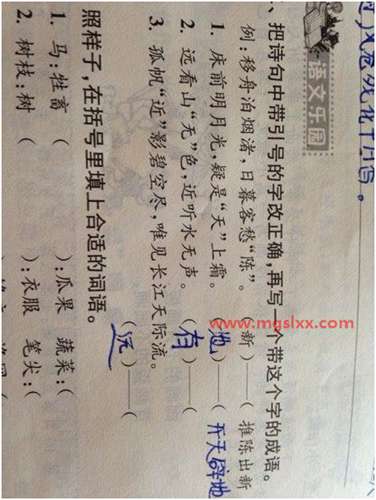 语文乐园
、把诗句中带引号的字改正确,再写一个带这个字的成语。
例:移舟泊烟渚,日暮客愁“陈”。(新) 推陈出新
1. 床前明月光,疑是“天”上霜。(地)—(开天辟地
2. 远看山“无”色,近听水无声。(有)—(
3. 孤帆“近”影碧空尽,唯见长江天际流。(远)—(
照样子,在括号里填上合适的词语。
1. 马:牲畜 ( ):瓜果 蔬菜:(
2. 树枝:树 ( ):衣服 笔尖:(
www.mgslxx.com